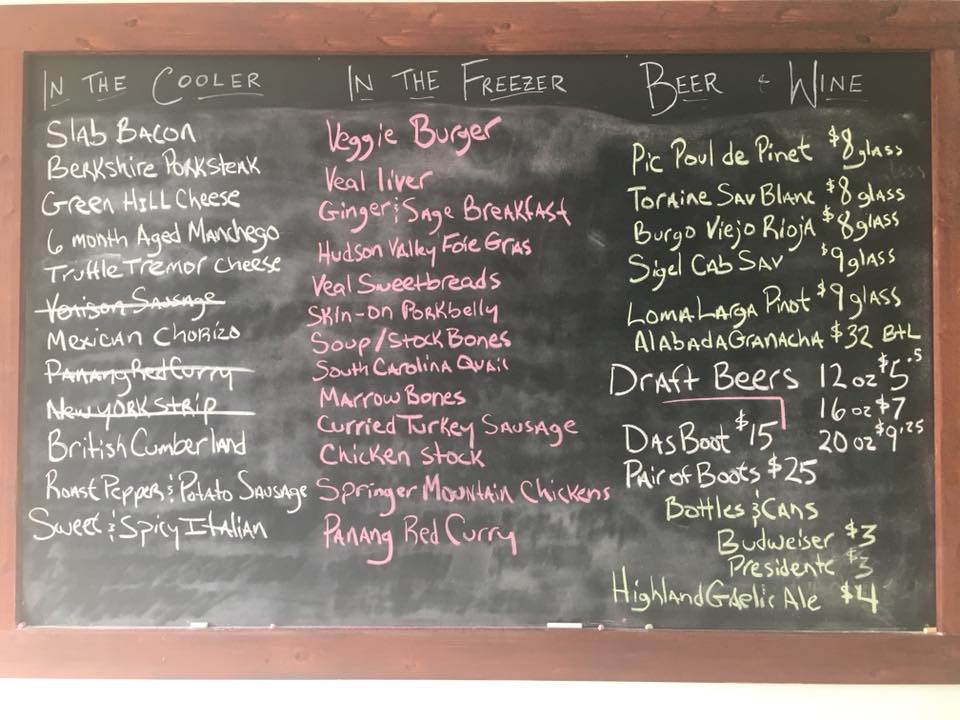 In The Cooler
Slab Bacon
Berkshire Porksteak
Green Hill Cheese
6 month Aged Manchego
Truffle Tremor Cheese
Venison Sausage
Mexican Chorizo
Panang Red Curry
New York Strip
British Cumberland
Roast Pepper & Potato Sausage
Sweet & Spicy Italian
In The Freezer
Veggie Burger
Veal liver
Ginger & Sage Breakfast
Hudson Valley Foie Gras
Veal Sweetbreads
Skin-on Porkbelly
Soup/Stock Bones
South Carolina Quail
Marrow Bones
Curried Turkey Sausage
Chicken Stock
Springer Mountain Chickens
Panang Red Curry
Beer & Wine
Pic Poul de Pinet $8 glass
Toraine Sav Blanc $8 glass
Burgo Viejo Rioja $8 glass
Sigel Cab Sav $9 glass
Loma Larga Pinot $9 glass
Alabada Granacha $32 Btl
Draft Beers 12 oz $5.5
16 oz $7
Das Boot $15 20 oz $9.25
Pair of Boots $25
Bottles & Cans
Budweiser $3
Presidente $3
Highland Gaelic Ale $4